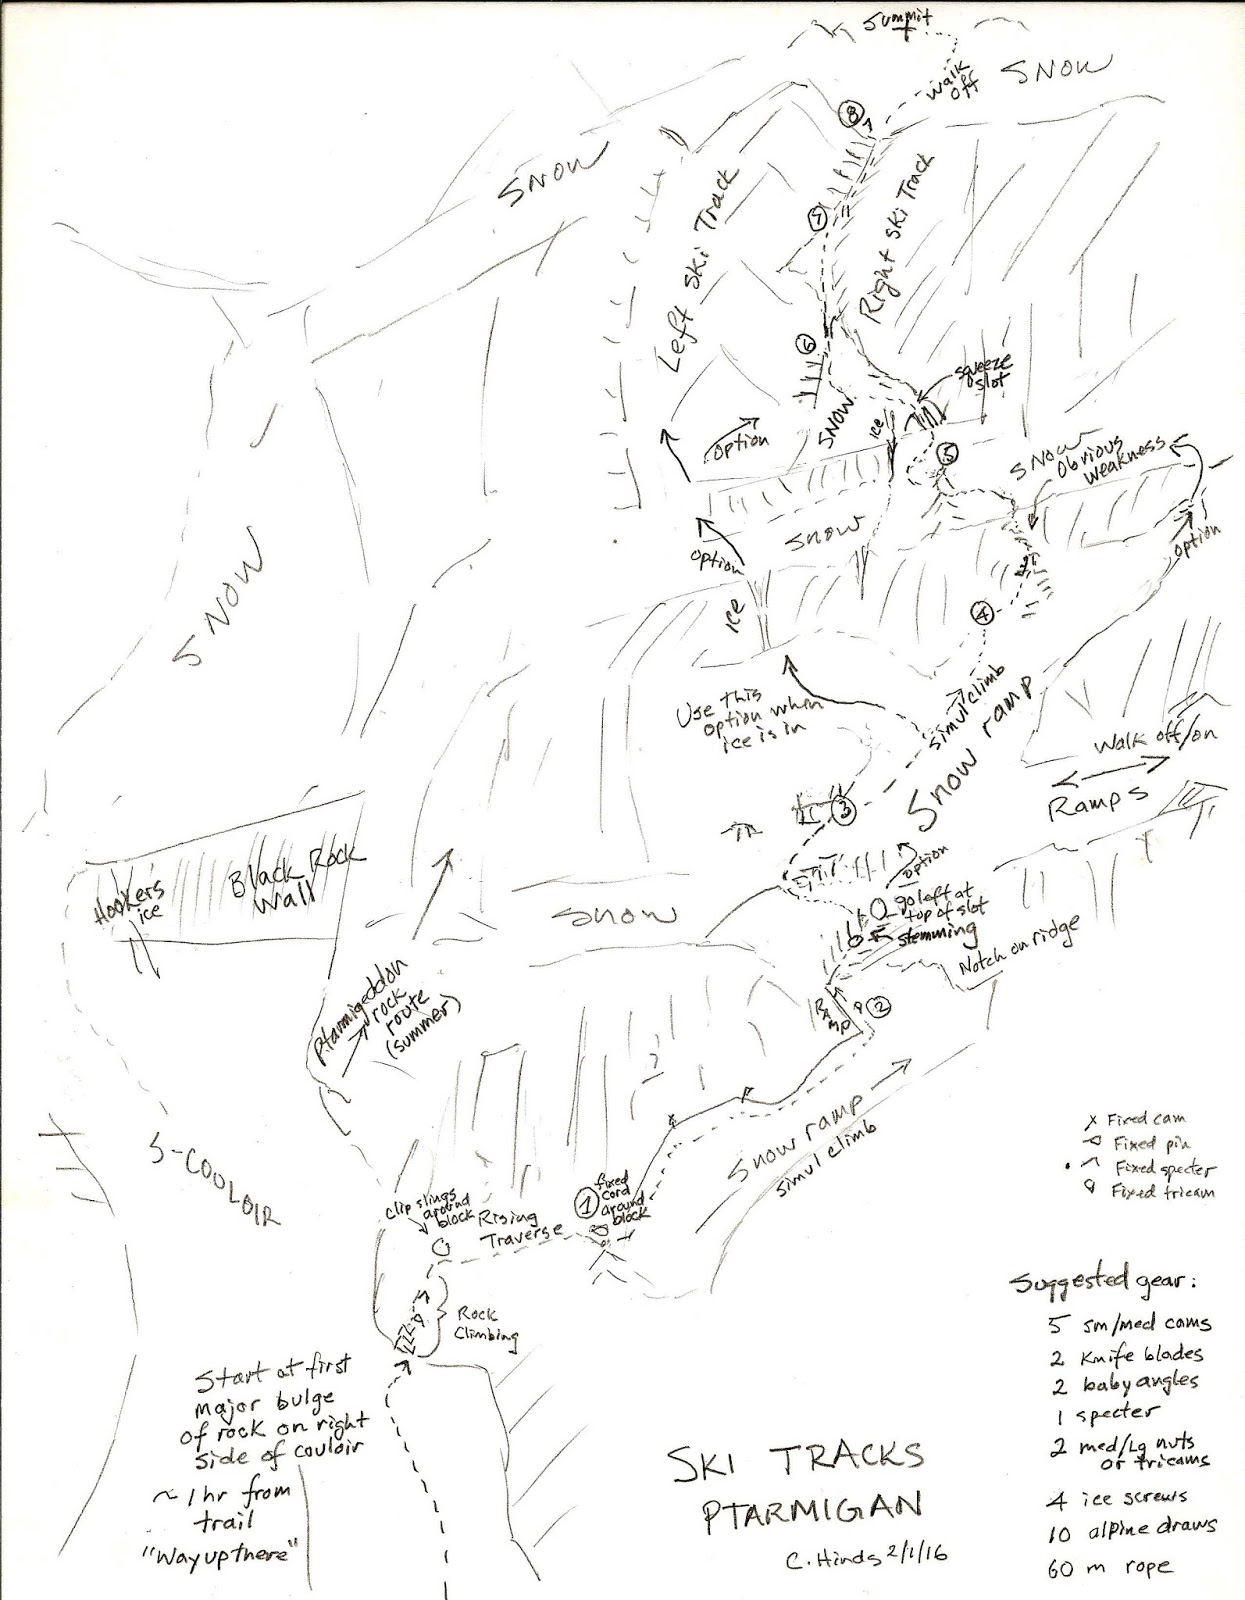 Summit
Walk
off
SNOW
8
SNOW
Left Ski Track
7
Right Ski Track
6
squeeze
slot
SNOW
ice
option
5
SNOW
Obvious
weakness
option
SNOW
option
ice
4
SNOW
Use this
option when
ice is in
simul climb
Snow ramp
Walk off/on
Ramps
3
option
Hookers
ice
Black Rock
Wall
SNOW
go left at
top of slot
stemming
Notch on ridge
Ptarmigeddon
rock
route
(summer)
RAMP
2
Snow ramp
simul climb
S-COULOIR
x Fixed cam
Fixed pin
Fixed specter
Fixed tricam
clip slings
around
block
Rising
Traverse
1
fixed
cord
around
block
Rock
Climbing
Start at first
major bulge
of rock on right
side of couloir
~ 1 hr from
trail
"Way up there"
Suggested gear:
5 sm/med cams
2 Knife blades
2 baby angles
1 specter
2 med/Lg nuts
or tricams
4 ice screws
10 alpine draws
60 m rope
SKI TRACKS
PTARMIGAN
C. Hinds 2/1/16